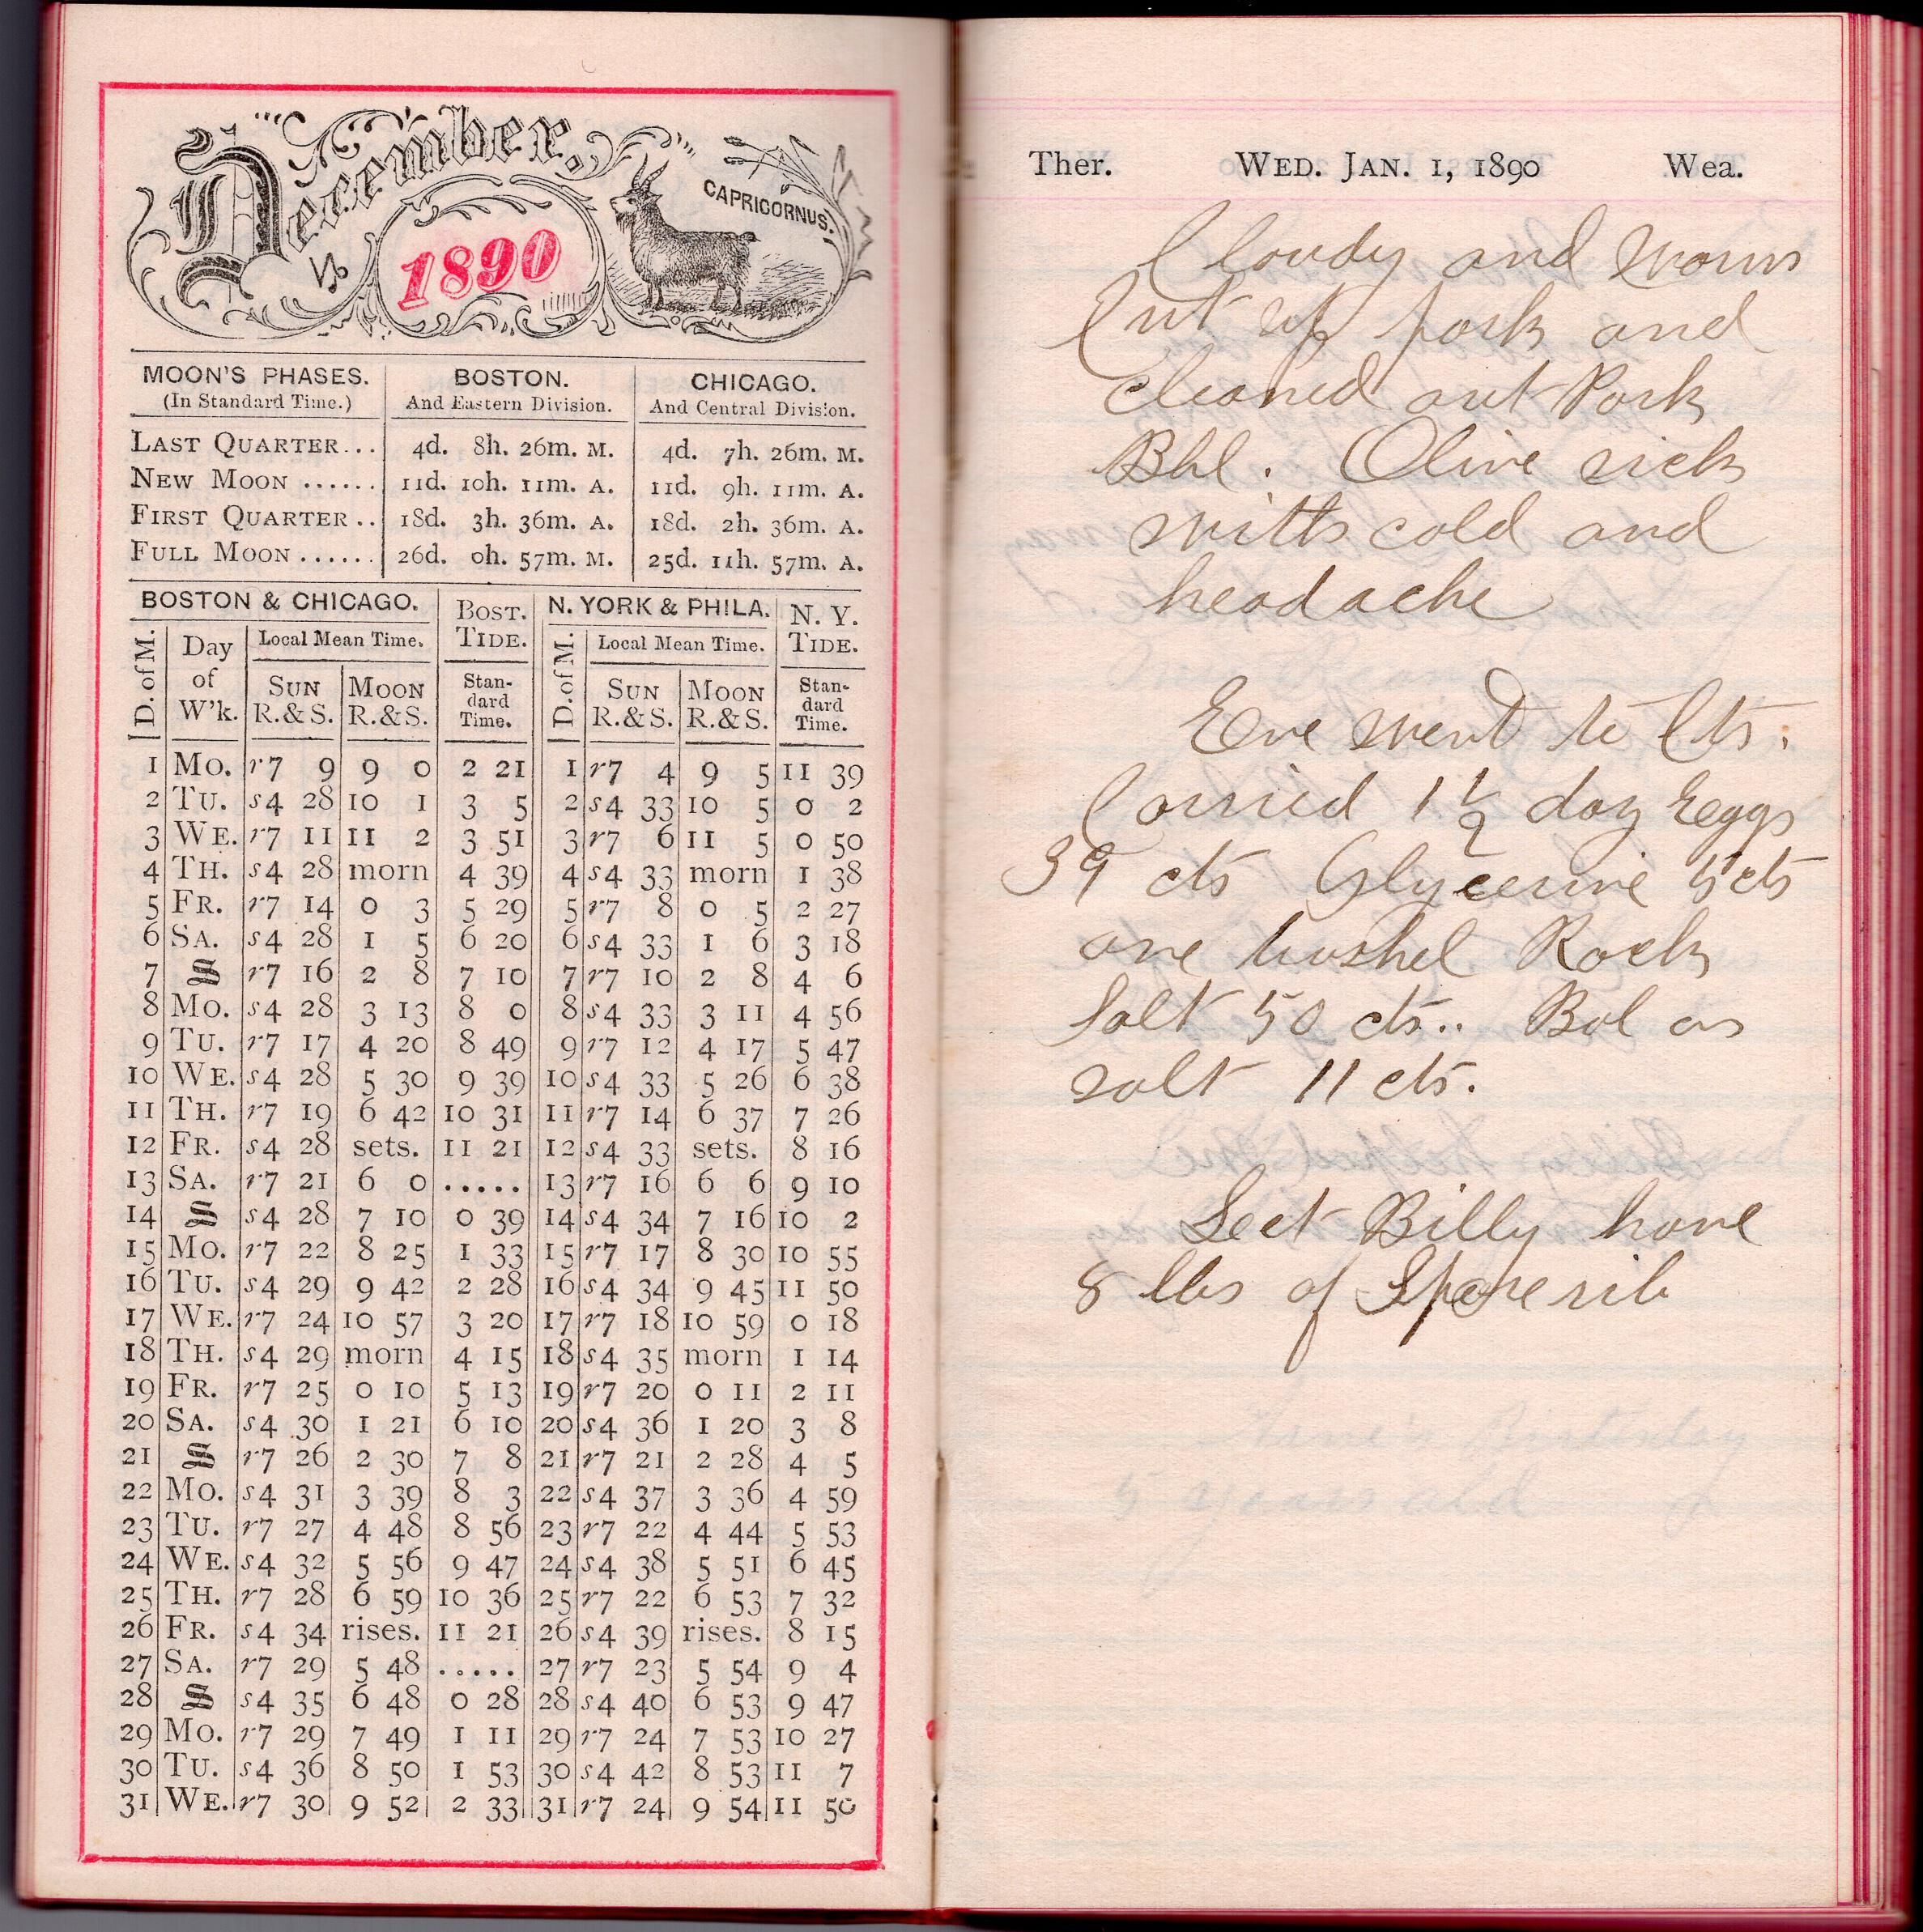 December,
1890
CAPRICORNUS.
MOON'S PHASES. BOSTON. CHICAGO.
(In Standard Time.) And Eastern Division. And Central Division.
LAST QUARTER... 4d. 8h. 26m. M. 4d. 7h. 26m. M.
NEW MOON ...... 11d. 10h. 11m. A. 11d. 9h. 11m. A.
FIRST QUARTER.. 18d. 3h. 36m. A. 18d. 2h. 36m. A.
FULL MOON ...... 26d. 0h. 57m. M. 25d. 11h. 57m. A.
BOSTON & CHICAGO. BOST. TIDE. N. YORK & PHILA. N. Y. TIDE.
D. of M. Day of W'k. Local Mean Time. D. of M. Local Mean Time.
SUN R.&S. MOON R.&S. Standard Time. SUN R.&S. MOON R.&S. Standard Time.
1 MO. r7 9 9 0 2 21 1 r7 4 9 5 11 39
2 TU. s4 28 10 1 3 5 2 s4 33 10 5 0 2
3 WE. r7 11 11 2 3 51 3 r7 6 11 5 0 50
4 TH. s4 28 morn 4 39 4 s4 33 morn 1 38
5 FR. r7 14 0 3 5 29 5 r7 8 0 5 2 27
6 SA. s4 28 1 5 6 20 6 s4 33 1 6 3 18
7 S r7 16 2 8 7 10 7 r7 10 2 8 4 6
8 MO. s4 28 3 13 8 0 8 s4 33 3 11 4 56
9 TU. r7 17 4 20 8 49 9 r7 12 4 17 5 47
10 WE. s4 28 5 30 9 39 10 s4 33 5 26 6 38
11 TH. r7 19 6 42 10 31 11 r7 14 6 37 7 26
12 FR. s4 28 sets. 11 21 12 s4 33 sets. 8 16
13 SA. r7 21 6 0 ..... 13 r7 16 6 6 9 10
14 S s4 28 7 10 0 39 14 s4 34 7 16 10 2
15 MO. r7 22 8 25 1 33 15 r7 17 8 30 10 55
16 TU. s4 29 9 42 2 28 16 s4 34 9 45 11 50
17 WE. r7 24 10 57 3 20 17 r7 18 10 59 0 18
18 TH. s4 29 morn 4 15 18 s4 35 morn 1 14
19 FR. r7 25 0 10 5 13 19 r7 20 0 11 2 11
20 SA. s4 30 1 21 6 10 20 s4 36 1 20 3 8
21 S r7 26 2 30 7 8 21 r7 21 2 28 4 5
22 MO. s4 31 3 39 8 3 22 s4 37 3 36 4 59
23 TU. r7 27 4 48 8 56 23 r7 22 4 44 5 53
24 WE. s4 32 5 56 9 47 24 s4 38 5 51 6 45
25 TH. r7 28 6 59 10 36 25 r7 22 6 53 7 32
26 FR. s4 34 rises. 11 21 26 s4 39 rises. 8 15
27 SA. r7 29 5 48 ..... 27 r7 23 5 54 9 4
28 S s4 35 6 48 0 28 28 s4 40 6 53 9 47
29 MO. r7 29 7 49 1 11 29 r7 24 7 53 10 27
30 TU. s4 36 8 50 1 53 30 s4 42 8 53 11 7
31 WE. r7 30 9 52 2 33 31 r7 24 9 54 11 50
Ther. WED. JAN. 1, 1890 Wea.
Cloudy and warm
Cut up pork and
cleaned out Pork
Bbl. Olive sick
with cold and
headache
Eve went to Cts.
Carried 1 1/2 doz Eggs
39 cts Glycerine 5 cts
one bushel Rock
Salt 50 cts.. Bal on
salt 11 cts.
Leet Billy have
8 lbs of Spare rib